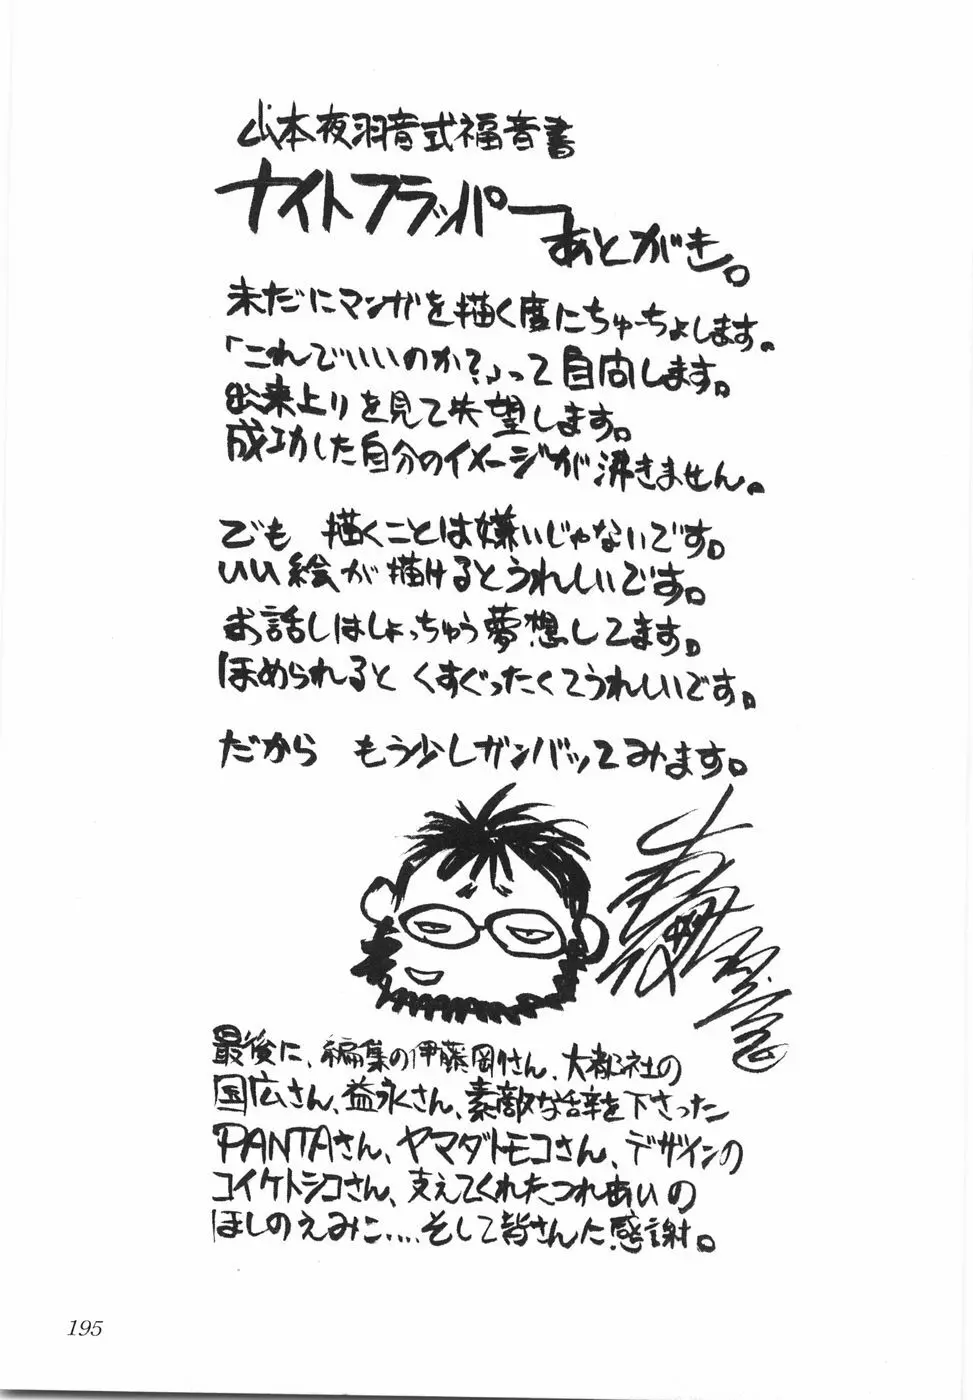 山本夜羽音式福音書
ナイトフラッパー
あとがき。
未だにマンガを描く度にちゅーちょします。
「これでいいのか?」って自問します。
出来上りを見て失望します。
成功した自分のイメージが沸きません。
でも 描くことは嫌いじゃないです。
いい絵が描けるとうれしいです。
お話しはしょっちゅう夢想してます。
ほめられると くすぐったくてうれしいです。
だから もう少しガンバッてみます。
最後に、編集の伊藤剛さん、大都社の
国広さん、益永さん、素敵な辞を下さった
PANTAさん、ヤマダトモコさん、デザインの
コイケトシコさん、支えてくれたつれあいの
ほしのえみこ....そして皆さんに感謝。
195